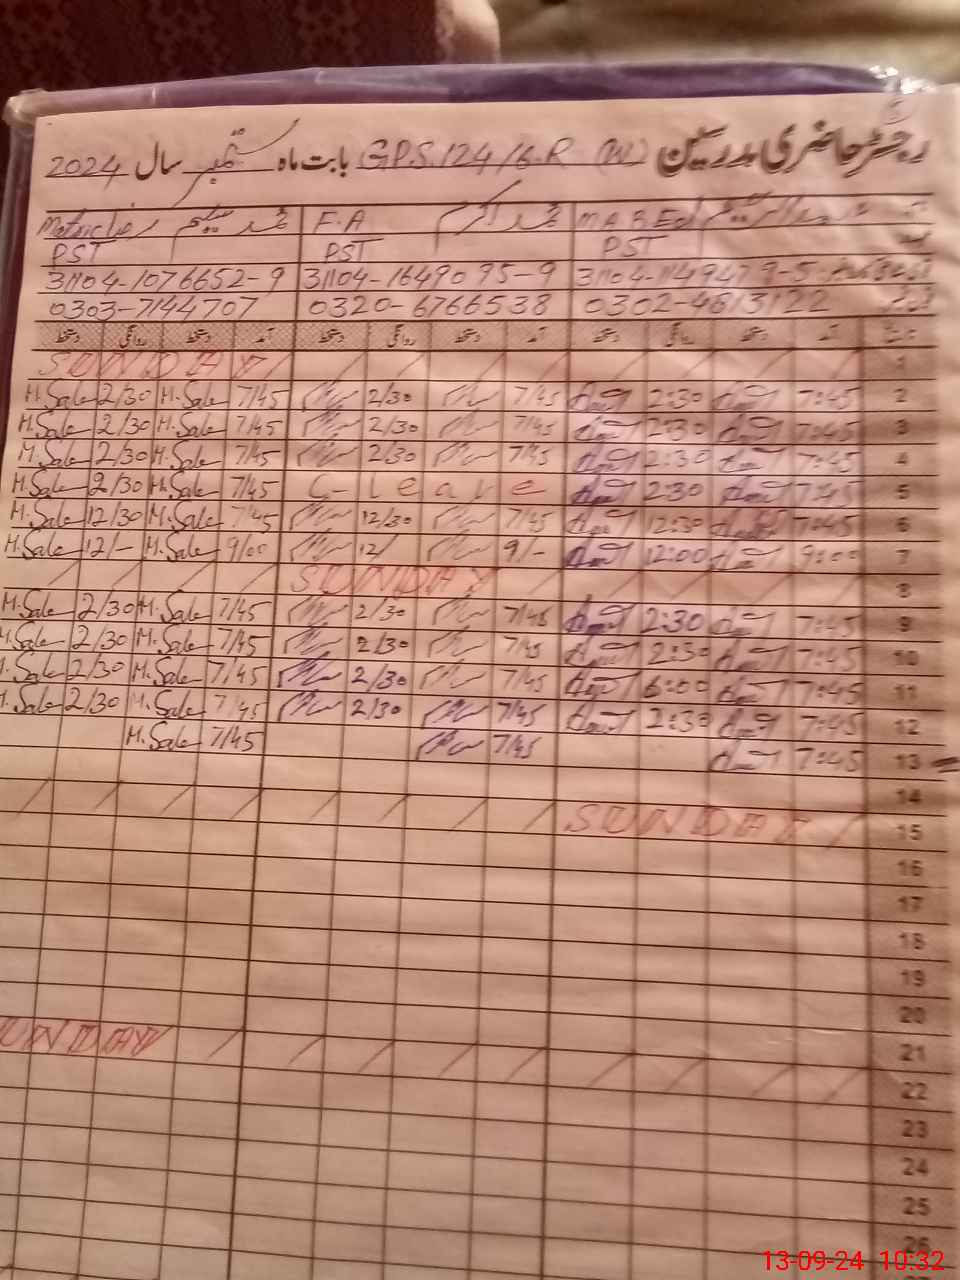 رجسٹر حاضری مدرسین G.P.S 124/6.R (W) بابت ماہ ستمبر سال 2024
M A B.Ed محمد اکرم F.A محمد سلیم Matric
PST PST PST
31104-1149479-5 31104-1649095-9 31104-1076652-9
0302-4613122 0320-6766538 0303-7144707
تاریخ آمد دستخط روانگی دستخط آمد دستخط روانگی دستخط آمد دستخط روانگی دستخط
1 SUNDAY
2 7:45 2:30 7/45 2/30 7/45 M.Sale 2/30 M.Sale
3 7:45 2:30 7/45 2/30 7/45 M.Sale 2/30 M.Sale
4 7:45 2:30 7/45 2/30 7/45 M.Sale 2/30 M.Sale
5 7:45 2:30 C-leave 7/45 M.Sale 2/30 M.Sale
6 7:45 12:30 7/45 12/30 7/45 M.Sale 12/30 M.Sale
7 9:00 12:00 9/- 12/ 9/00 M.Sale 12/- M.Sale
8 SUNDAY
9 7:45 2:30 7/45 2/30 7/45 M.Sale 2/30 M.Sale
10 7:45 2:30 7/45 2/30 7/45 M.Sale 2/30 M.Sale
11 7:45 6:00 7/45 2/30 7/45 M.Sale 2/30 M.Sale
12 7:45 2:30 7/45 2/30 7/45 M.Sale 2/30 M.Sale
13 7:45 7/45 7/45 M.Sale
14
15 SUNDAY
16
17
18
19
20
21
22 SUNDAY
23
24
25
26
13-09-24 10:32